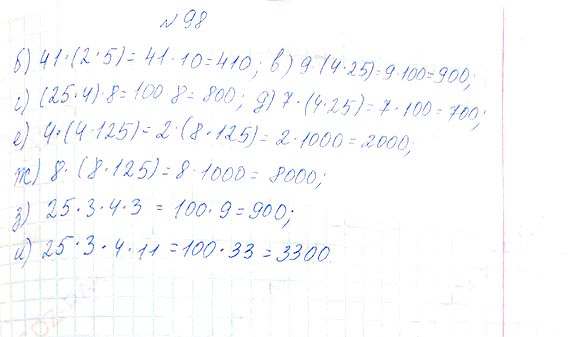 №98
б) 41·(2·5)=41·10=410; в) 9·(4·25)=9·100=900;
г) (25·4)·8=100·8=800; д) 7·(4·25)=7·100=700;
е) 4·(4·125)=2·(8·125)=2·1000=2000;
ж) 8·(8·125)=8·1000=8000;
з) 25·3·4·3=100·9=900;
и) 25·3·4·11=100·33=3300